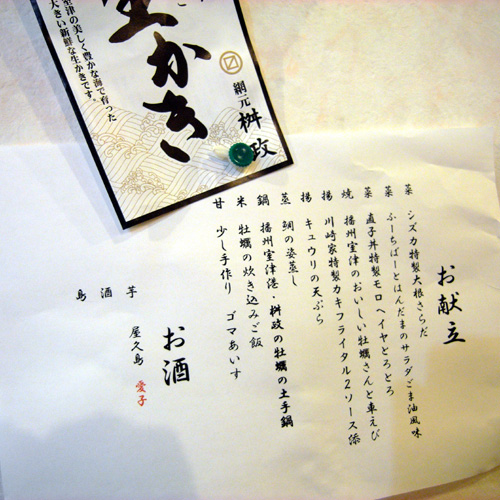 室津の美しく豊かな海で育った
大きい新鮮な生かきです。
かき
網元 桝政
お献立
菜 シズカ特製大根さらだ
菜 ふーちばーとはんだまのサラダごま油風味
菜 直子丼特製モロヘイヤとろとろ
焼 播州室津のおいしい牡蠣さんと車えび
揚 川崎家特製カキフライタル2ソース添
揚 キュウリの天ぷら
蒸 鯛の姿蒸し
鍋 播州室津港・桝政の牡蠣の土手鍋
米 牡蠣の炊き込みご飯
甘 少し手作り ゴマあいす
お酒
芋 屋久島 愛子
酒
島